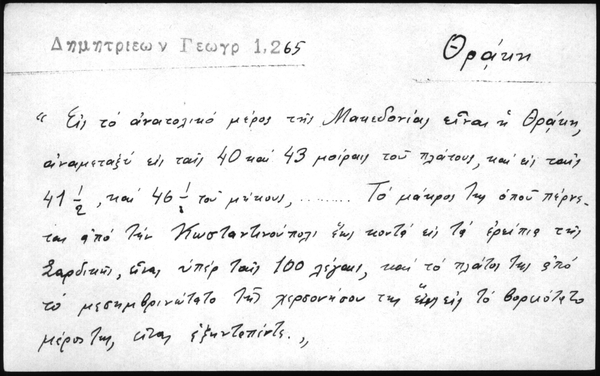 Δημητριεων Γεωγρ 1,265
Θράκη
“ Εἰς τὸ ἀνατολικὸ μέρος τῆς Μακεδονίας εἶναι ἡ Θρᾴκη,
ἀναμεταξὺ εἰς ταῖς 40 καὶ 43 μοίραις τοῦ πλάτους, καὶ εἰς ταῖς
41 ½, καὶ 46 ½ τοῦ μήκους, ......... Τὸ μάκρος της ὁποῦ πέρνε-
ται ἀπὸ τὴν Κωσταντινούπολι ἕως κοντὰ εἰς τὰ ἐρείπια τῆς
Σαρδικῆς, εἶναι ὑπὲρ ταῖς 100 λέγαις, καὶ τὸ πλάτος της ἀπὸ
τὸ μεσημβρινώτατο τῆς χερσονήσου της ἕως εἰς τὸ βορειότατο
μέρος της, εἶναι ἑξηνταπέντε.„